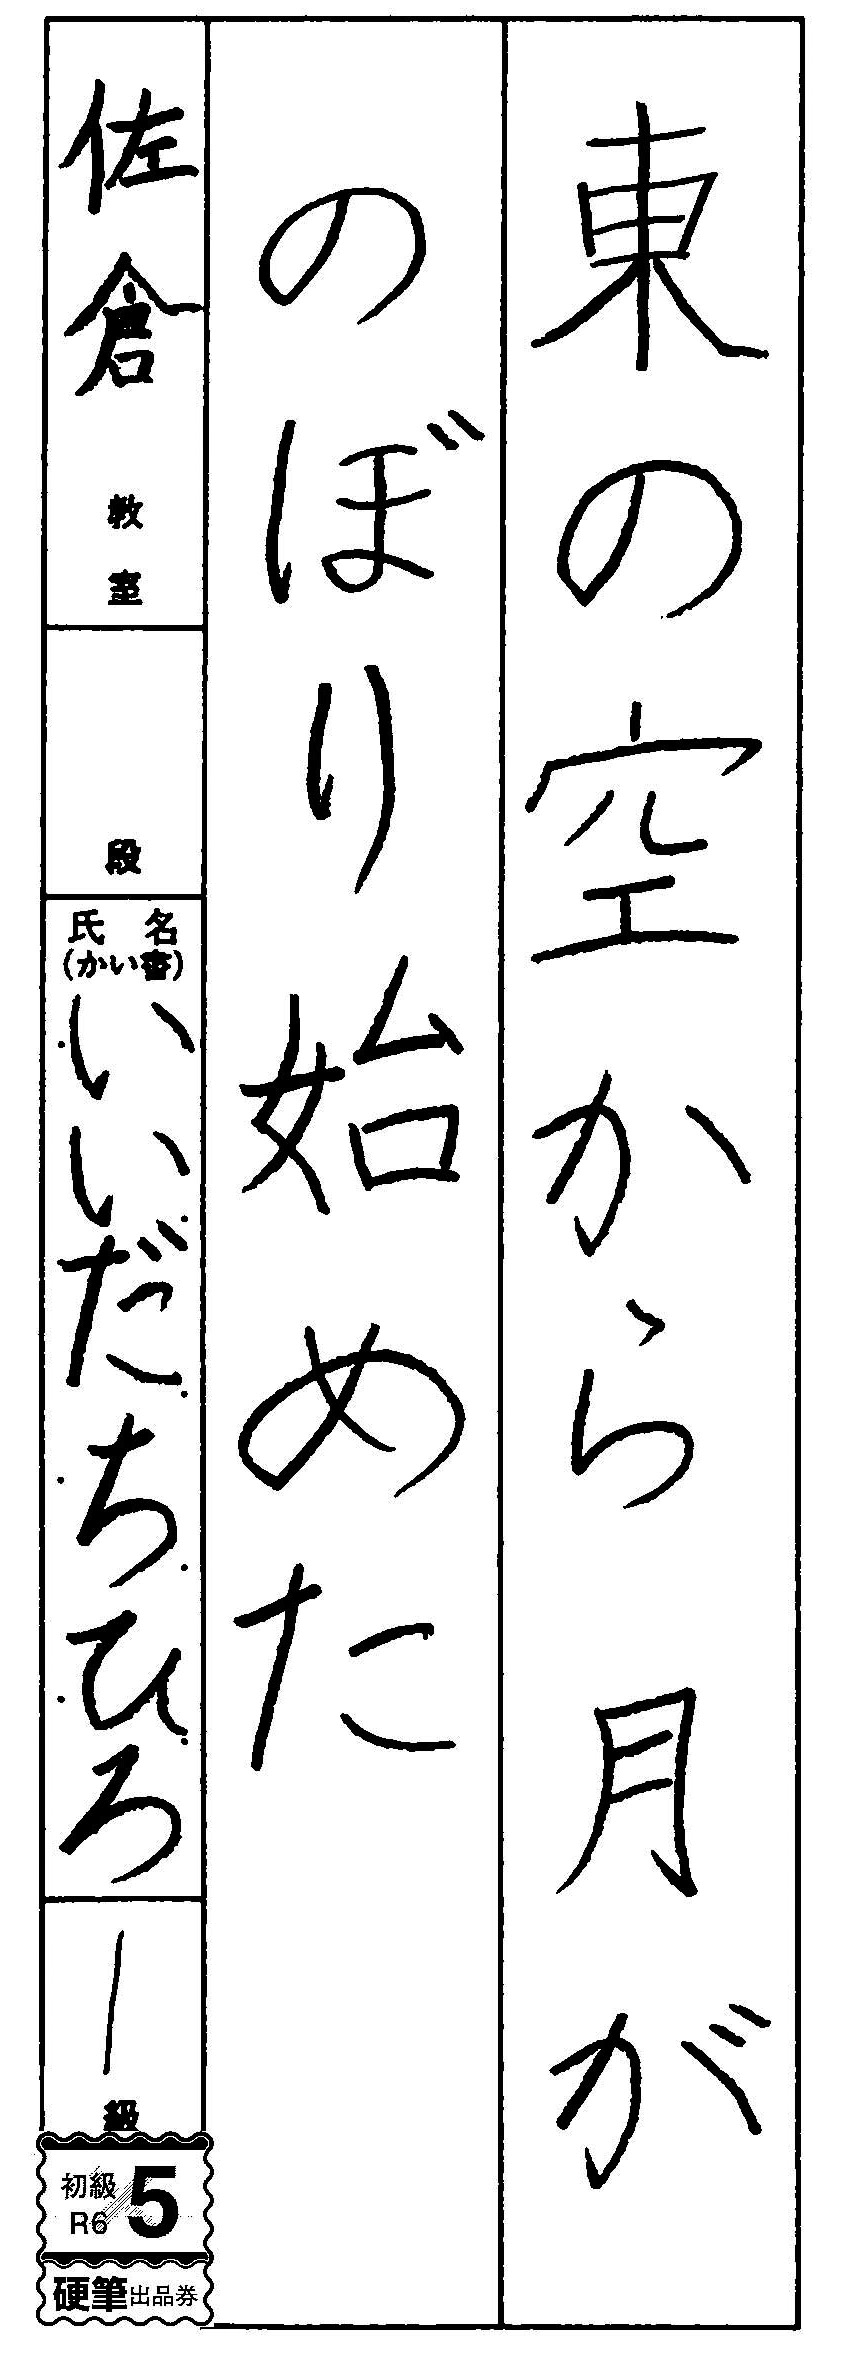 東の空から月が
のぼり始めた
佐倉教室
段
氏名
(かい書)
いいだちひろ
一級
初級
R6 5
硬筆出品券